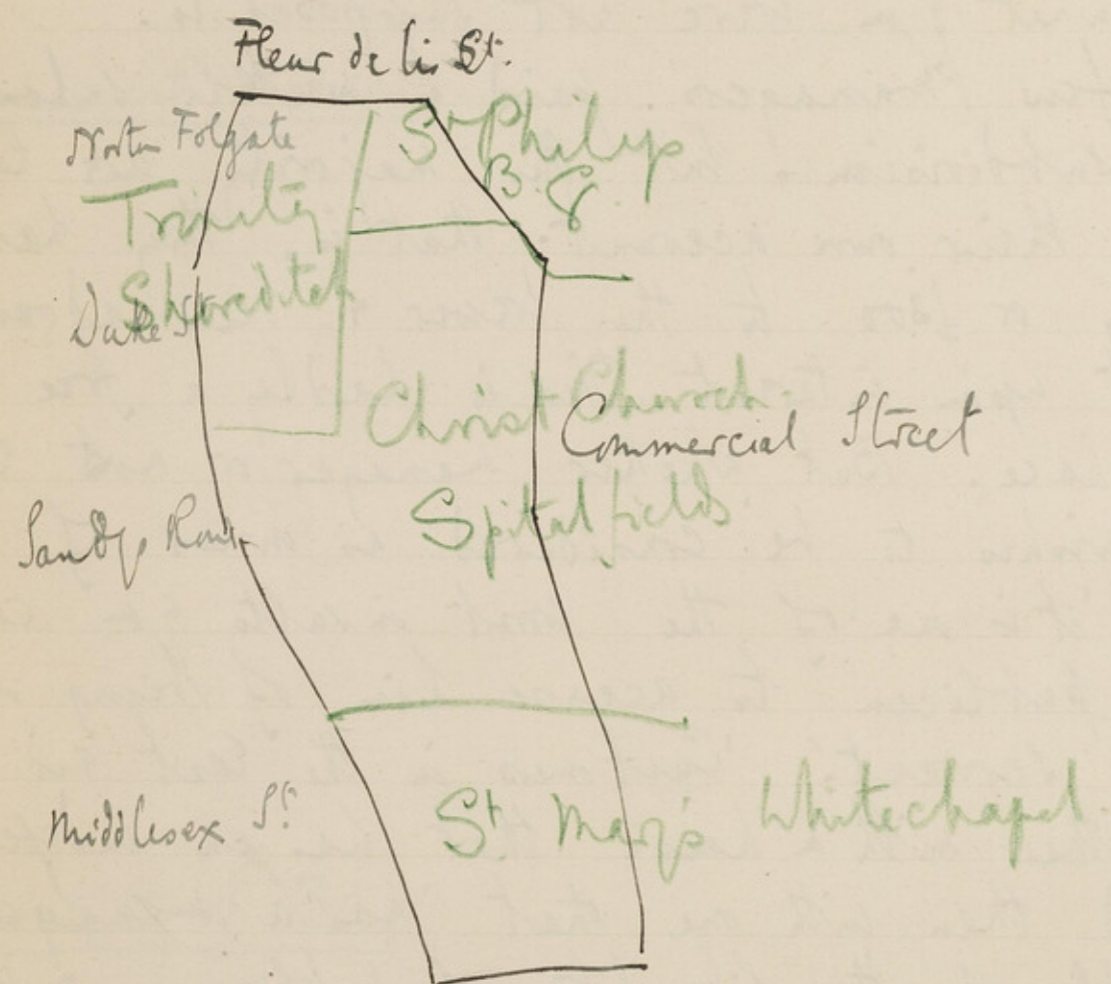 Fleur de lis St.
Norton Folgate
St Philip
B. G.
Trinity
Shoreditch
Duke St
Christ Church
Commercial Street
Spitalfields
Sandys Row
Middlesex St.
St Mary's Whitechapel